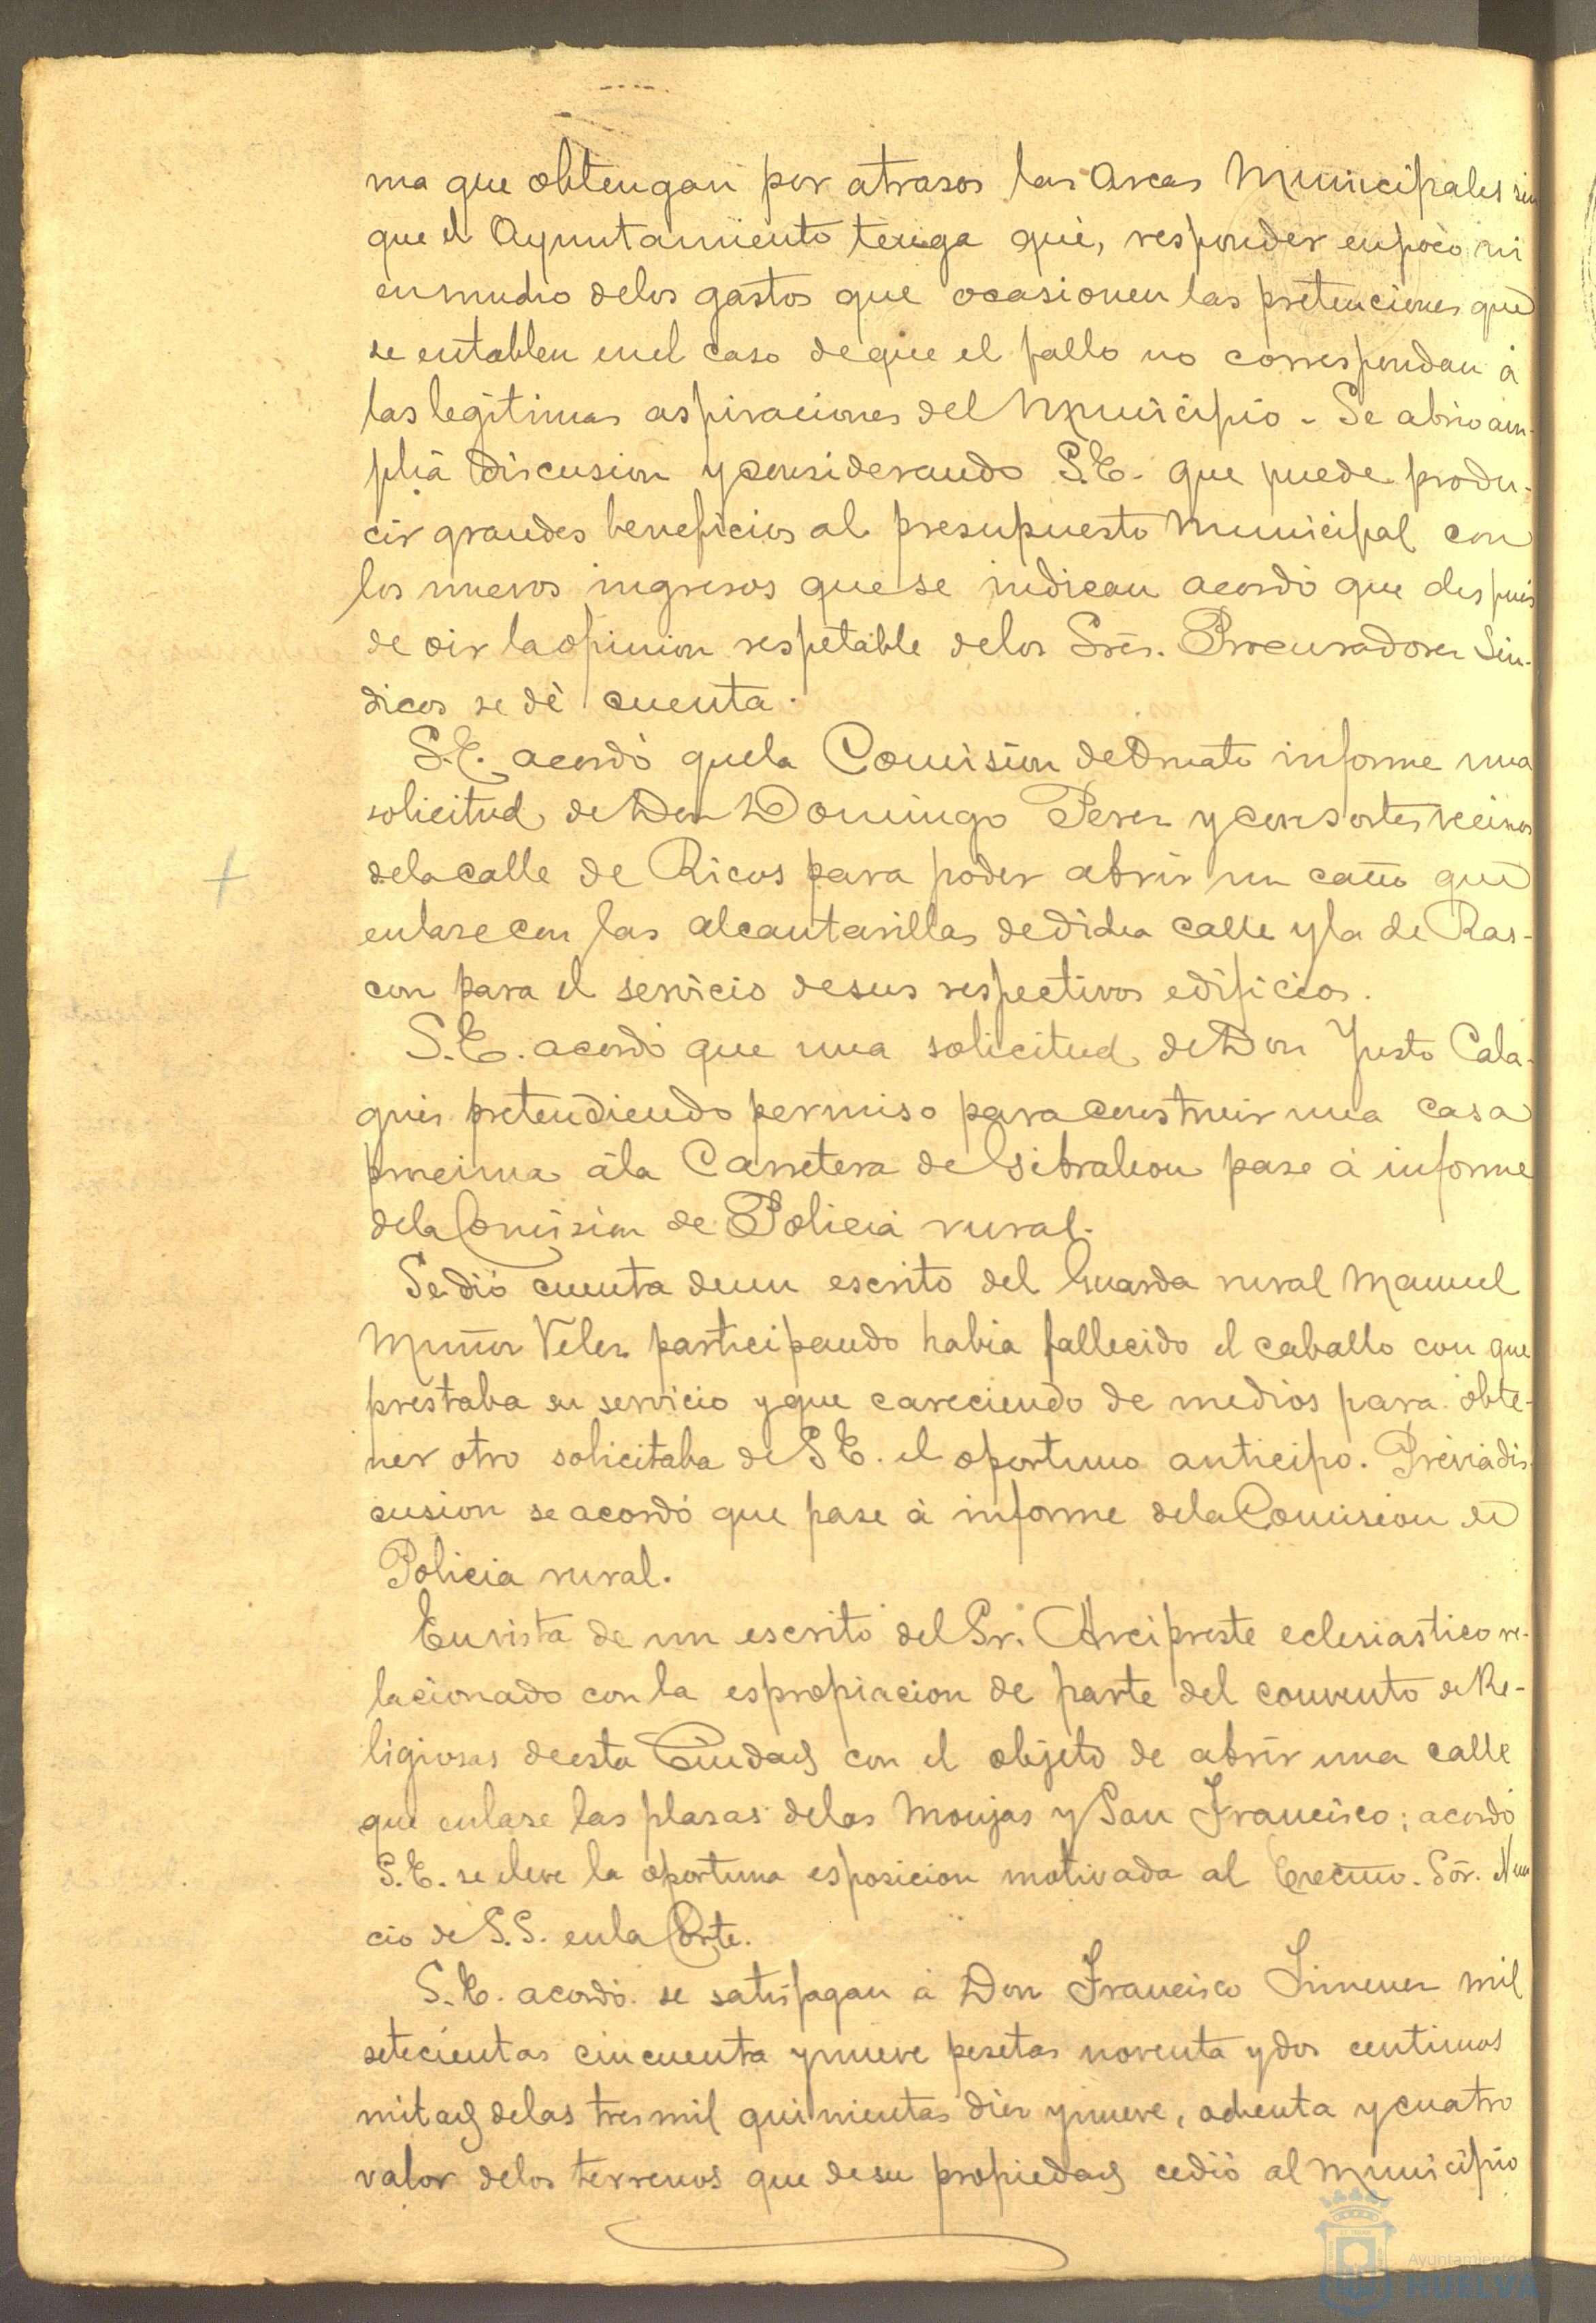 ma que obtengan por atrasos las Arcas Municipales sin
que el Ayuntamiento tenga que, responder en poco ni
en mucho de los gastos que ocasionen las pretenciones que
se entablen en el caso de que el fallo no correspondan á
las legítimas aspiraciones del Municipio - Se abrió ám-
pliá discusion y considerando S.E. que puede produ-
cir grandes beneficios al presupuesto Municipal con
los nuevos ingresos que se indican acordó que despues
de oir la opinion respetable de los Sres. Procuradores Sín-
dicos se dé cuenta.
S.E. acordó que la Comisión de Ornato informe una
solicitud de Don Domingo Perez y consortes vecinos
de la calle de Ricos para poder abrir un caño que
enlase con las alcantarillas de dicha calle y la de Ras-
con para el servicio de sus respectivos edificios.
S.E. acordó que una solicitud de Don Justo Cala-
guis pretendiendo permiso para construir una casa
procima á la Carretera de Gibraleon pase á informe
de la Comision de Policiá rural.
Se dió cuenta de un escrito del Guarda rural Manuel
Muñoz Velez participando habia fallecido el caballo con que
prestaba su servicio y que careciendo de medios para obte-
ner otro solicitaba de S E. el oportuno anticipo. Prévia dis-
cusion se acordó que pase á informe de la Comision de
Policia rural.
En vista de un escrito del Sr. Arcipreste eclesiastico re-
lacionado con la espropiacion de parte del convento de Re-
ligiosas de esta Ciudad con el objeto de abrir una calle
que enlase las plasas de las Monjas y San Francisco; acordó
S.E. se eleve la oportuna esposicion motivada al Excmo. Sór. Nun
cio de S.S. en la Corte.
S.E. acordó se satisfagan á Don Francisco Jimenez mil
setecientas cincuenta y nueve pesetas noventa y dos centimos
mitad de las tres mil quinientas diez y nueve, ochenta y cuatro
valor de los terrenos que de su propiedad cedió al Municipio
Ayuntamiento
HUELVA